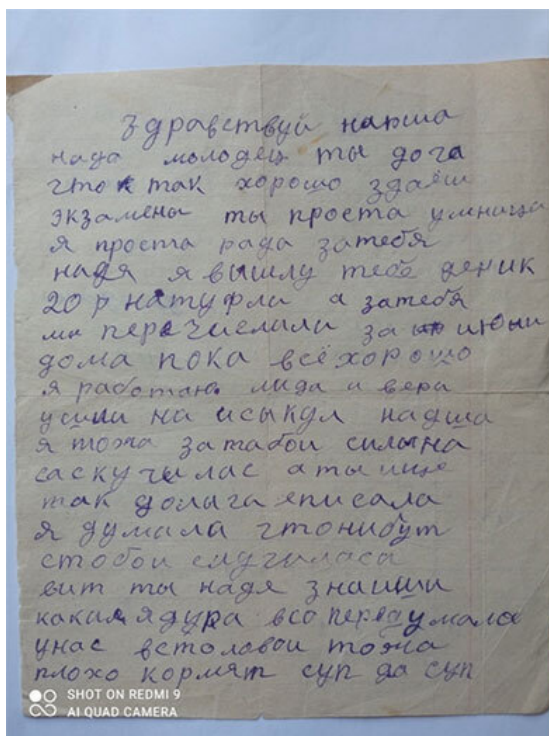 Здравствуй надша
надя молодец ты дога
что так хорошо здаёш
экзамены ты проста умница
я проста рада затебя
надя я вышлу тебе деник
20 р натуфли а затебя
мн перечислали за июни
дома пока всё хорошо
я работаю лида и вера
ушли на исыкул надша
я тожа затабои силына
саскучилас а ты ище
так долыга еписала
я думала чтонибут
стобои случиласа
вит ты надя знаиши
какая дура всо передумала
унас встоловои тожа
плохо кормят суп да суп
SHOT ON REDMI 9
AI QUAD CAMERA